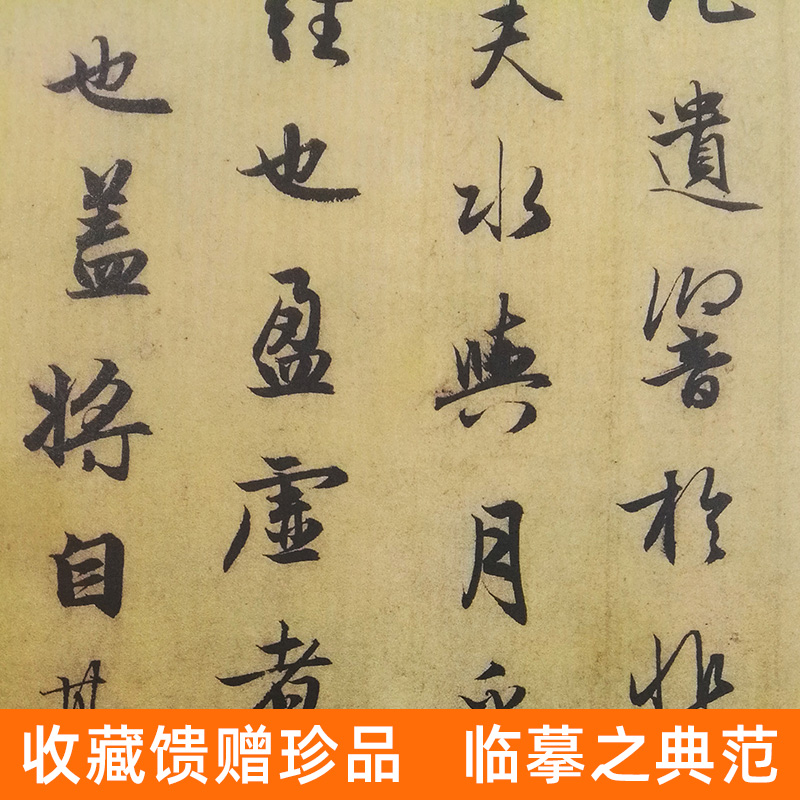 遺響於
夫水與月
往也盈虛者
也盖將自其
收藏馈赠珍品 临摹之典范